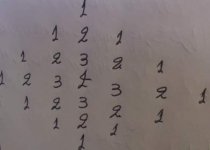 1
1 2 1
1 2 3 2 1
1 2 3 4 3 2 1
1 2 3 2 1
1 2 1
1